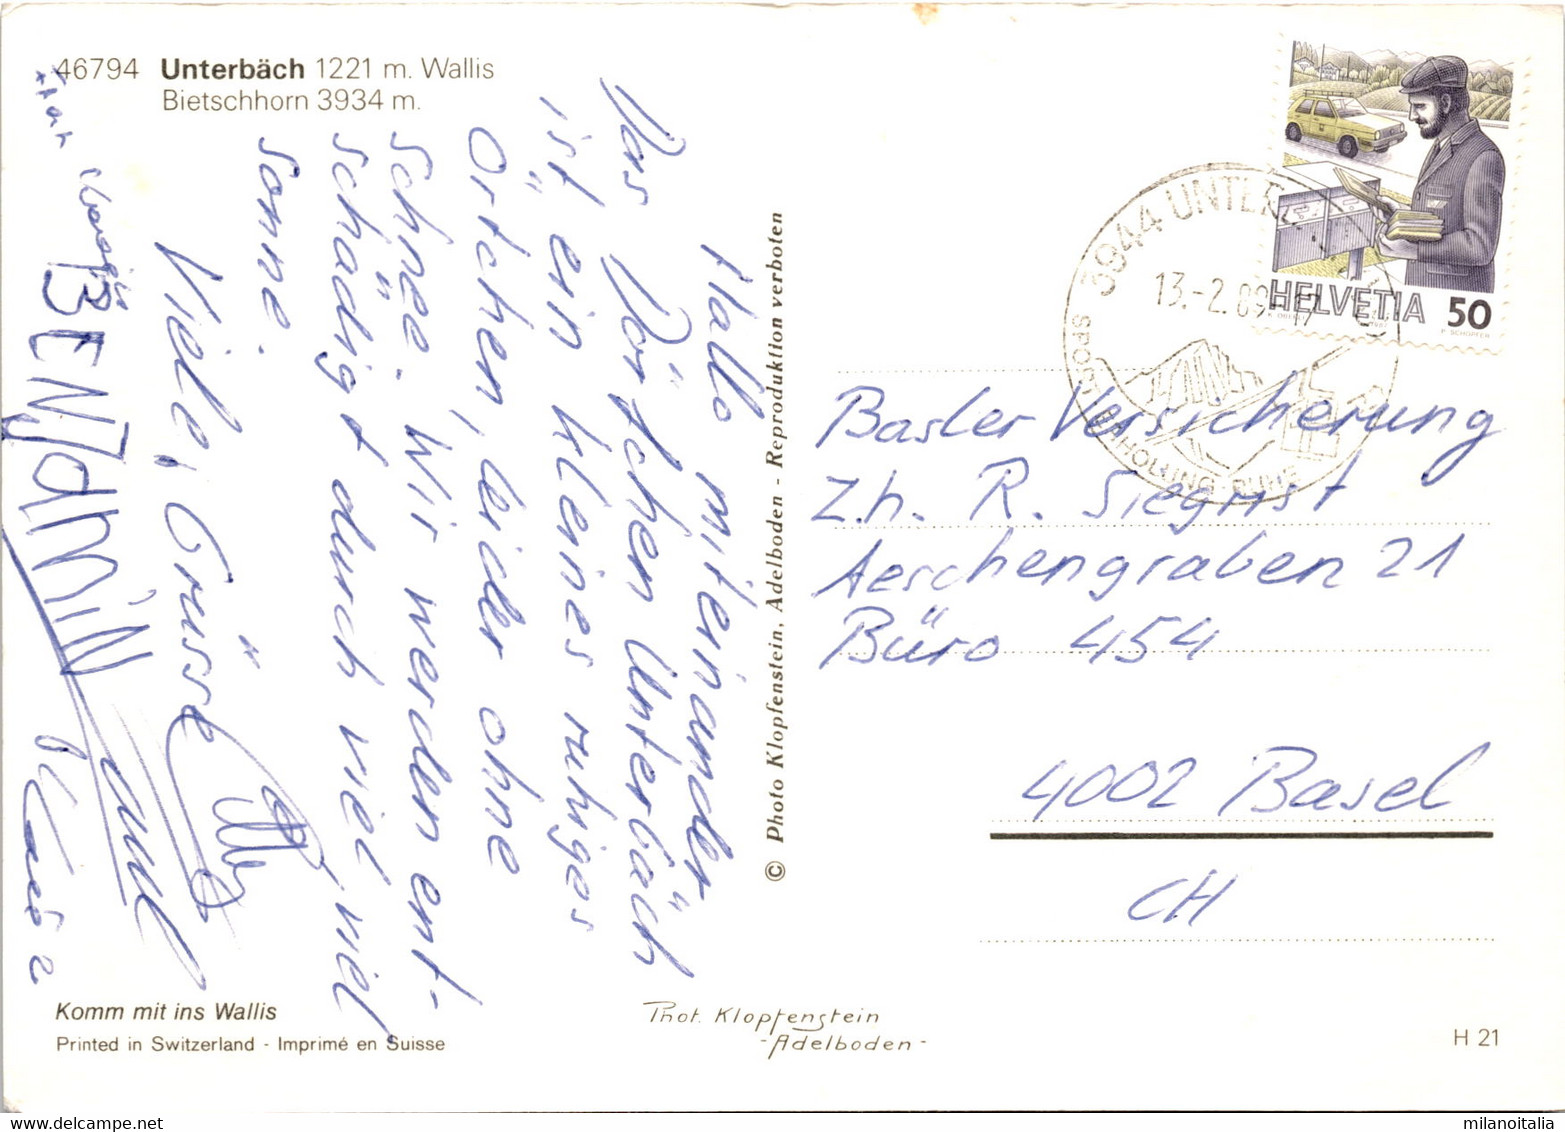 46794 Unterbäch 1221 m. Wallis
Bietschhorn 3934 m.
Hallo miteinander
Das Dörfchen Unterbäch
ist ein kleines ruhiges
Örtchen, leider ohne
Schnee. Wir werden ent-
schädigt durch viel, viel
Sonne.
Viele Grüsse
und
BENJAMIN
© Photo Klopfenstein, Adelboden - Reproduktion verboten
HELVETIA 50
3944 UNTER
13.-2.89-17
SPORT ERHOLUNG RUHE
Basler Versicherung
z.h. R. Siegrist
Aeschengraben 21
Büro 454
4002 Basel
CH
Komm mit ins Wallis
Printed in Switzerland - Imprimé en Suisse
Phot. Klopfenstein
- Adelboden -
H 21
milanoitalia